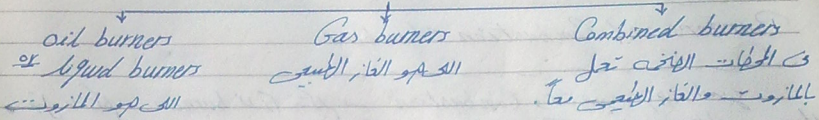 oil burners
or liquid burners
اللى هو المازوت
Gas burners
اللى هو الغاز الطبيعى
Combined burners
فى المحطات الضخمه تعمل
بالمازوت والغاز الطبيعى معاً.